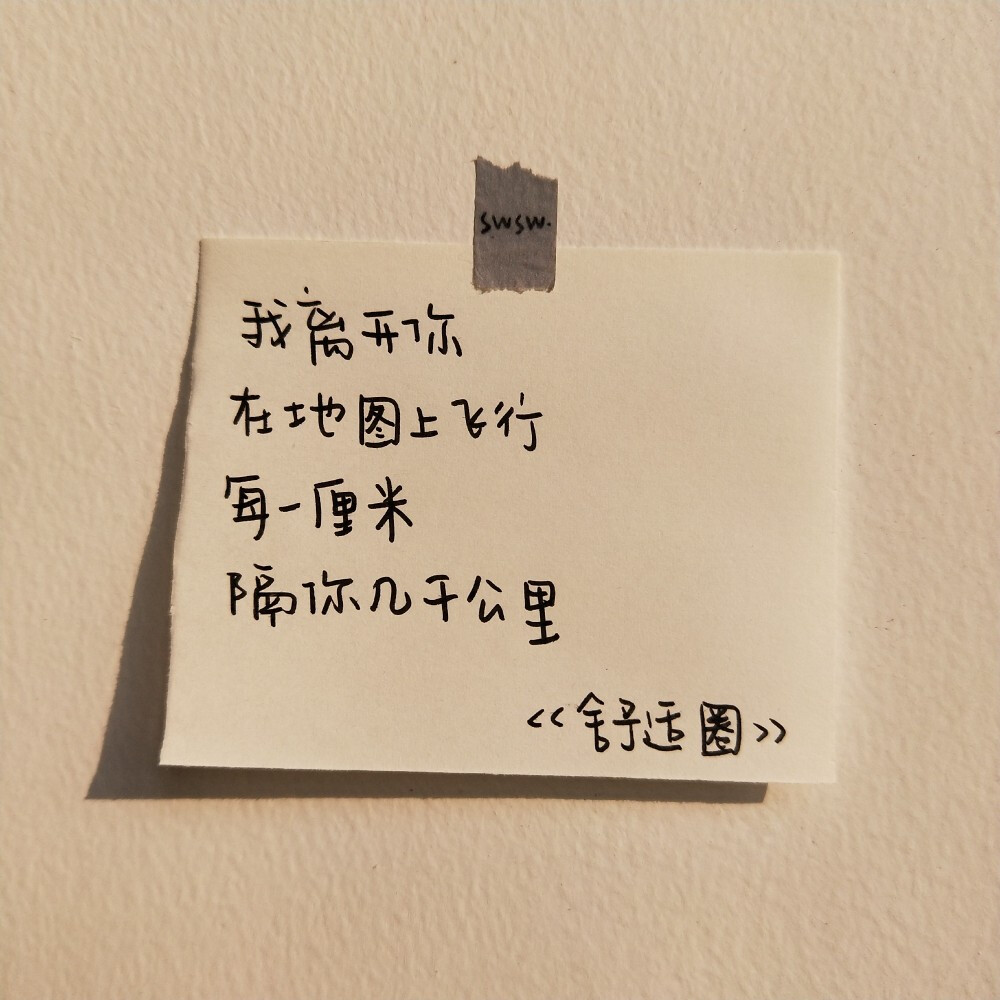 swsw.
我离开你
在地图上飞行
每一厘米
隔你几千公里
<<舒适圈>>